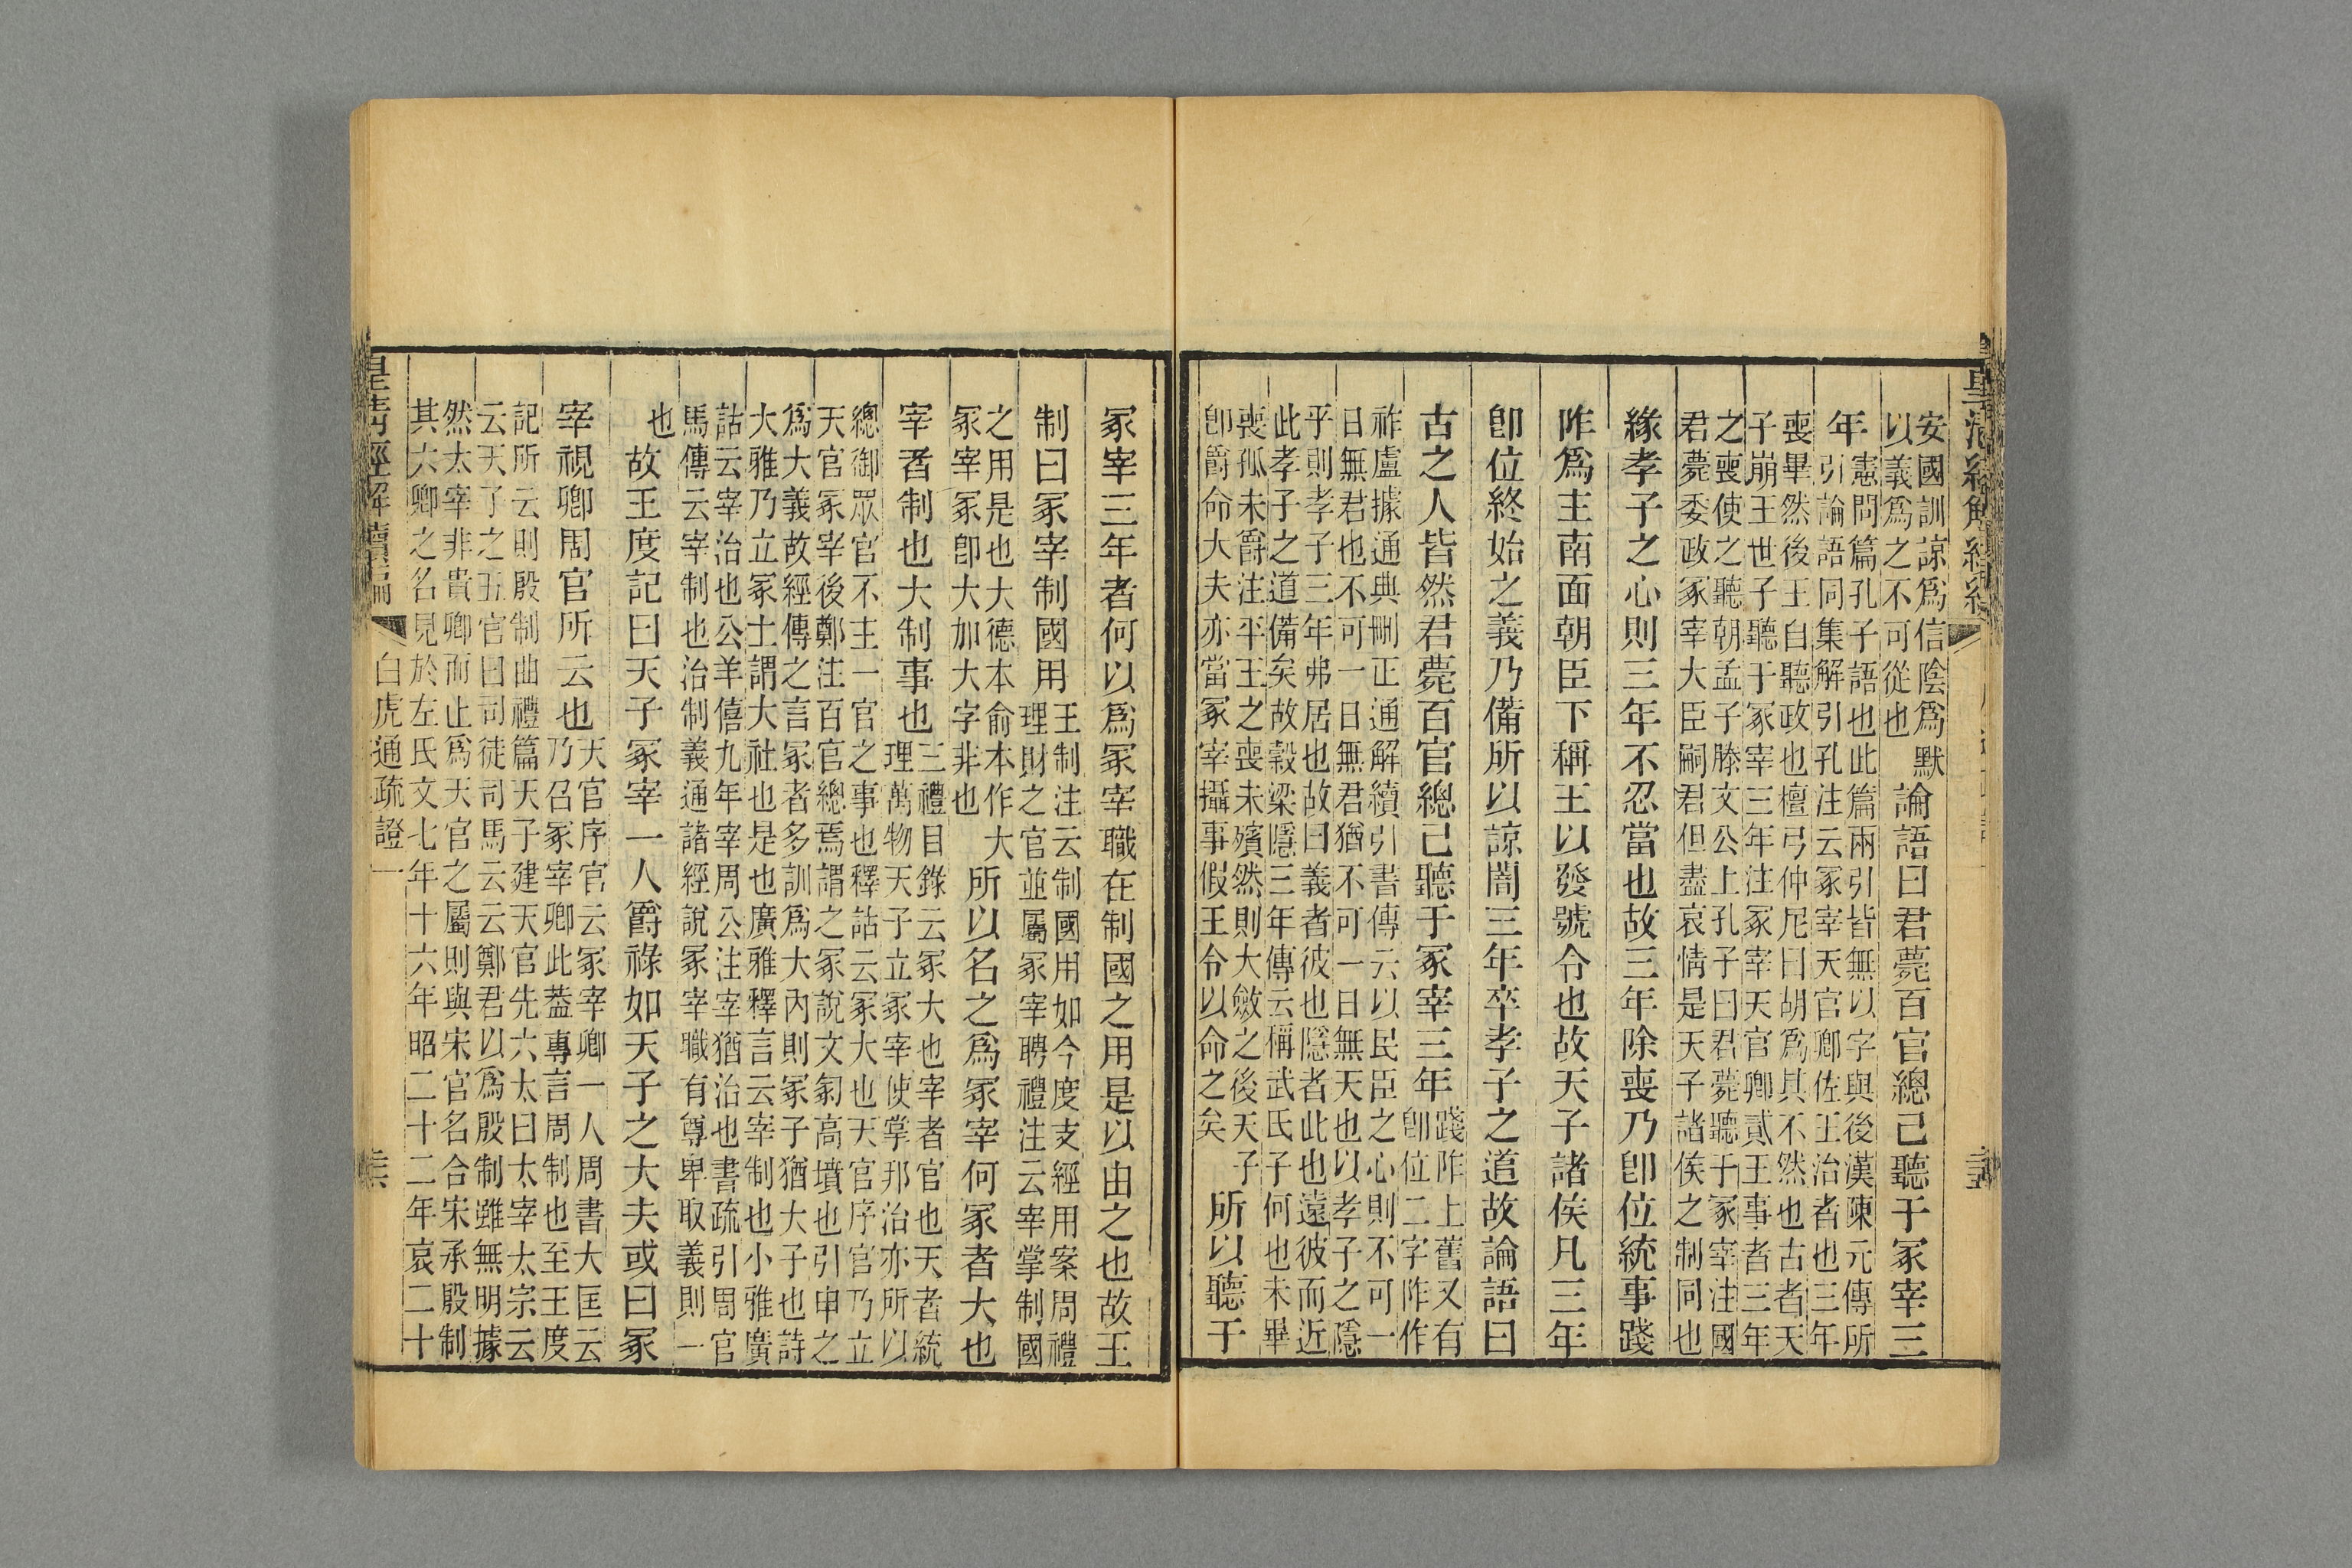 安國訓諒爲信陰爲默
以義爲之不可從也
論語曰君薨百官總己聽于冢宰三
年
憲問篇孔子語也此篇兩引皆無以字與後漢陳元傳所
引論語同集解引孔注云冢宰天官卿佐王治者也三年
喪畢然後王自聽政也檀弓仲尼曰胡爲其不然也古者天
子崩王世子聽于冢宰三年注冢宰天官卿貳王事者三年
之喪使之聽朝孟子滕文公上孔子曰君薨聽于冢宰注國
君薨委政冢宰大臣嗣君但盡哀情是天子諸侯之制同也
緣孝子之心則三年不忍當也故三年除喪乃卽位統事踐
阼爲主南面朝臣下稱王以發號令也故天子諸侯凡三年
卽位終始之義乃備所以諒闇三年卒孝子之道故論語曰
古之人皆然君薨百官總己聽于冢宰三年
踐阼上舊又有
卽位二字阼作
祚盧據通典刪正通解續引書傳云以民臣之心則不可一
日無君也不可一日無君猶不可一日無天也以孝子之隱
乎則孝子三年弗居也故曰義者彼也隱者此也遠彼而近
此孝子之道備矣故穀梁隱三年傳云稱武氏子何也未畢
喪孤未爵注平王之喪未殯然則大斂之後天子
卽爵命大夫亦當冢宰攝事假王令以命之矣
所以聽于
冢宰三年者何以爲冢宰職在制國之用是以由之也故王
制曰冢宰制國用
王制注云制國用如今度支經用案周禮
理財之官並屬冢宰聘禮注云宰掌制國
之用是也大德本俞本作大
冢宰冢卽大加大字非也
所以名之爲冢宰何冢者大也
宰者制也大制事也
三禮目錄云冢大也宰者官也天者統
理萬物天子立冢宰使掌邦治亦所以
總御眾官不主一官之事也釋詁云冢大也天官序官乃立
天官冢宰後鄭注百官總焉謂之冢說文冢高墳也引申之
爲大義故經傳之言冢者多訓爲大內則冢子猶大子也詩
大雅乃立冢土謂大社也是也廣雅釋言云宰制也小雅廣
詁云宰治也公羊僖九年宰周公注宰猶治也書疏引周官
馬傳云宰制也治制義通諸經說冢宰職有尊卑取義則一
也
故王度記曰天子冢宰一人爵祿如天子之大夫或曰冢
宰視卿周官所云也
天官序官云冢宰卿一人周書大匡云
乃召冢宰卿此葢專言周制也至王度
記所云則殷制曲禮篇天子建天官先六太曰太宰太宗云
云天子之五官曰司徒司馬云云鄭君以爲殷制雖無明據
然太宰非貴卿而止爲天官之屬則與宋官名合宋承殷制
其六卿之名見於左氏文七年十六年昭二十二年哀二十
皇清經解續編
白虎通疏證一